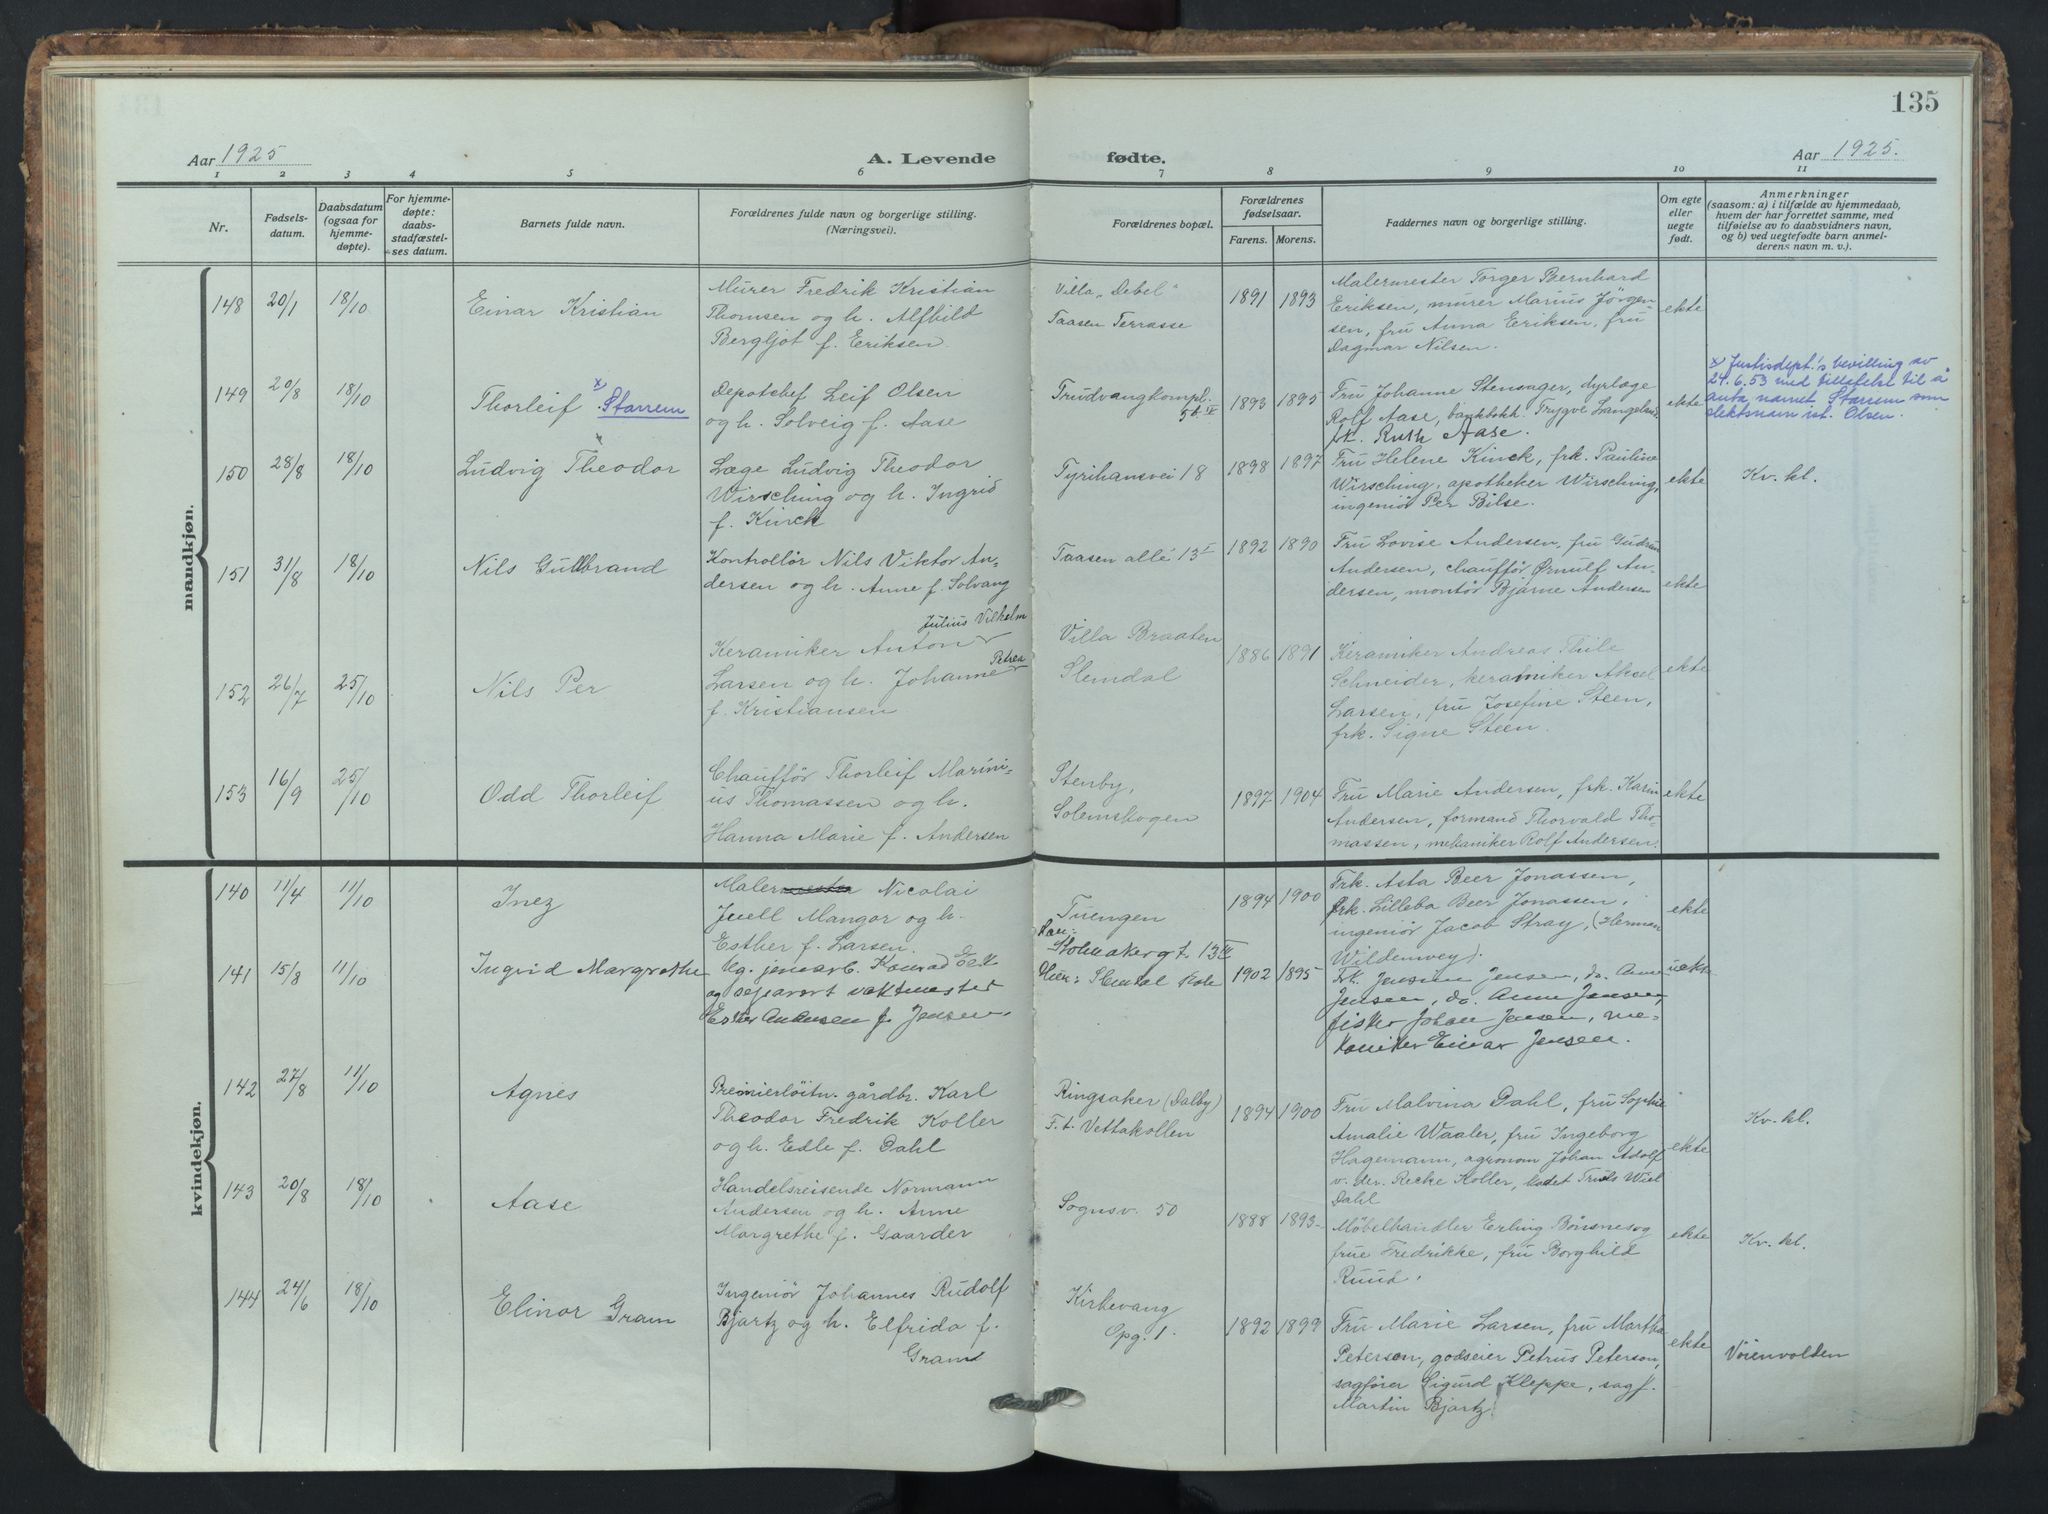 135
Aar 1925
A. Levende fødte.
Aar 1925.
1 2 3 4 5 6 7 8 9 10 11
Nr.
Fødsels-
datum.
Daabsdatum
(ogsaa for
hjemme-
døpte).
For hjemme-
døpte:
daabs-
stadfæstel-
ses datum.
Barnets fulde navn.
Forældrenes fulde navn og borgerlige stilling.
(Næringsvei).
Forældrenes bopæl.
Forældrenes
fødselsaar.
Farens. Morens.
Faddernes navn og borgerlige stilling.
Om egte
eller
uegte
født.
Anmerkninger
(saasom: a) i tilfælde av hjemmedaab,
hvem der har forrettet samme, med
tilføielse av to daabsvidners navn,
og b) ved uegtefødte barn anmel-
derens navn m. v.).
mandkjøn.
148 20/1 18/10
Einar Kristian
Murer Fredrik Kristian
Thomsen og h. Alfhild
Bergljot f. Eriksen.
Villa "Debel"
Taasen Terrasse
1891 1893
Malermester Torger Bernhard
Eriksen, murer Marius Jörgen
sen, fru Anna Eriksen, fru
Dagmar Nilsen.
ekte
149 20/8 18/10
Thorleif x Starrem
Depotchef Leif Olsen
og h. Solveig f. Aase
Trudvangkompl.
5t. IV
1893 1895
Fru Johanne Stensager, dyrlæge
Rolf Aase, bankbokh. Trygve Langelsrud
frk. Ruth Aase.
ekte
x Justisdept.'s bevilling av
24.6.53 med tillatelse til å
anta navnet Starrem som
slektsnavn ist. Olsen.
150 28/8 18/10
Ludvig Theodor
Læge Ludvig Theodor
Wirsching og h. Ingrid
f. Kinck
Tyrihansvei 18
1898 1897
Fru Helene Kinck, frk. Pauline
Wirsching, apotheker Wirsching,
ingeniör Per Bilse.
ekte
Kv. kl.
151 31/8 18/10
Nils Gulbrand
Kontrollör Nils Viktor An-
dersen og h. Anne f. Solvang
Taasen allé 13 I
1892 1890
Fru Lovise Andersen, fru Gudrun
Andersen, chaufför Ørnulf An-
dersen, montör Bjarne Andersen
ekte
152 26/7 25/10
Nils Per
Julius Vilhelm
Keramiker Anton
Petrea
Larsen og h. Johanne
f. Kristiansen
Villa Braaten
Slemdal
1886 1891
Keramiker Andreas Thile
Schneider, keramiker Aksel
Larsen, fru Josefine Steen,
frk. Signe Steen.
ekte
153 16/9 25/10
Odd Thorleif
Chaufför Thorleif Marini-
us Thomassen og h.
Hanna Marie f. Andersen
Stenby,
Solemskogen
1897 1904
Fru Marie Andersen, frk. Karin
Andersen, formand Thorvald Tho-
massen, mekaniker Rolf Andersen.
ekte
kvindekjøn.
140 11/4 11/10
Inez
Malermester Nicolai
Juell Mangor og h.
Esther f. Larsen.
Tuengen
1894 1900
Frk. Asta Beer Jonassen,
frk. Lilleba Beer Jonassen,
ingeniör Jacob Stray, (Herman
Wildenwey).
ekte
141 15/8 11/10
Ingrid Margrethe
Ug. jernarb. Konrad Eek
og separert vaktmester
Ester Andersen f. Jensen.
Han:
Stolmakergt. 13 III
Hun: Slemdal skole
1902 1895
Frk. Jensine Jensen, do. Anna
Jensen, do. Anne Jensen,
fisker Johan Jensen, me-
kaniker Einar Jensen.
uekte
142 27/8 11/10
Agnes
Premierlöitn. gårdbr. Karl
Theodor Fredrik Koller
og h. Edle f. Dahl
Ringsaker (Dalby)
F.t. Vettakollen
1894 1900
Fru Malvina Dahl, fru Sophie
Amalie Waaler, fru Ingeborg
Hagemann, agronom Johan Adolf
v. der. Recke Koller, kadet Truls Wiel
Dahl
ekte
Kv. kl.
143 20/8 18/10
Aase
Handelsreisende Normann
Andersen og h. Anne
Margrethe f. Gaarder
Sognsv. 50
1888 1893
Möbelhandler Erling Bönsnes og
frue Fredrikke, fru Borghild
Ruud.
ekte
Kv. kl.
144 24/6 18/10
Elinor Gram
Ingeniör Johannes Rudolf
Bjartz og h. Elfrida f.
Gram
Kirkevang
Opg. 1.
1892 1899
Fru Marie Larsen, fru Martha
Peterson, godseier Petrus Peterson,
sagförer Sigurd Kleppe, sagf.
Martin Bjartz.
ekte
Vöienvolden